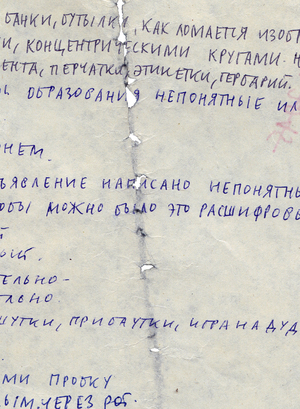 БАНКИ, БУТЫЛКИ, КАК ЛОМАЕТСЯ ИЗОБР
И, КОНЦЕНТРИЧЕСКИМИ КРУГАМИ. Н
ЕНТА, ПЕРЧАТКИ, ЭТИКЕТКИ, ГЕРБАРИЙ.
Ы ОБРАЗОВАНИЯ НЕПОНЯТНЫЕ ИЛ
НЕМ.
ЪЯВЛЕНИЕ НАПИСАНО НЕПОНЯТНЫ
ОБЫ МОЖНО БЫЛО ЭТО РАСШИФРОВ
Й
ЫЙ.
ТЕЛЬНО-
ТЕЛЬНО
ШУТКИ, ПРИБАУТКИ, ИГРА НА ДУД
МИ ПРОБКУ
ЫМ, ЧЕРЕЗ РОТ.